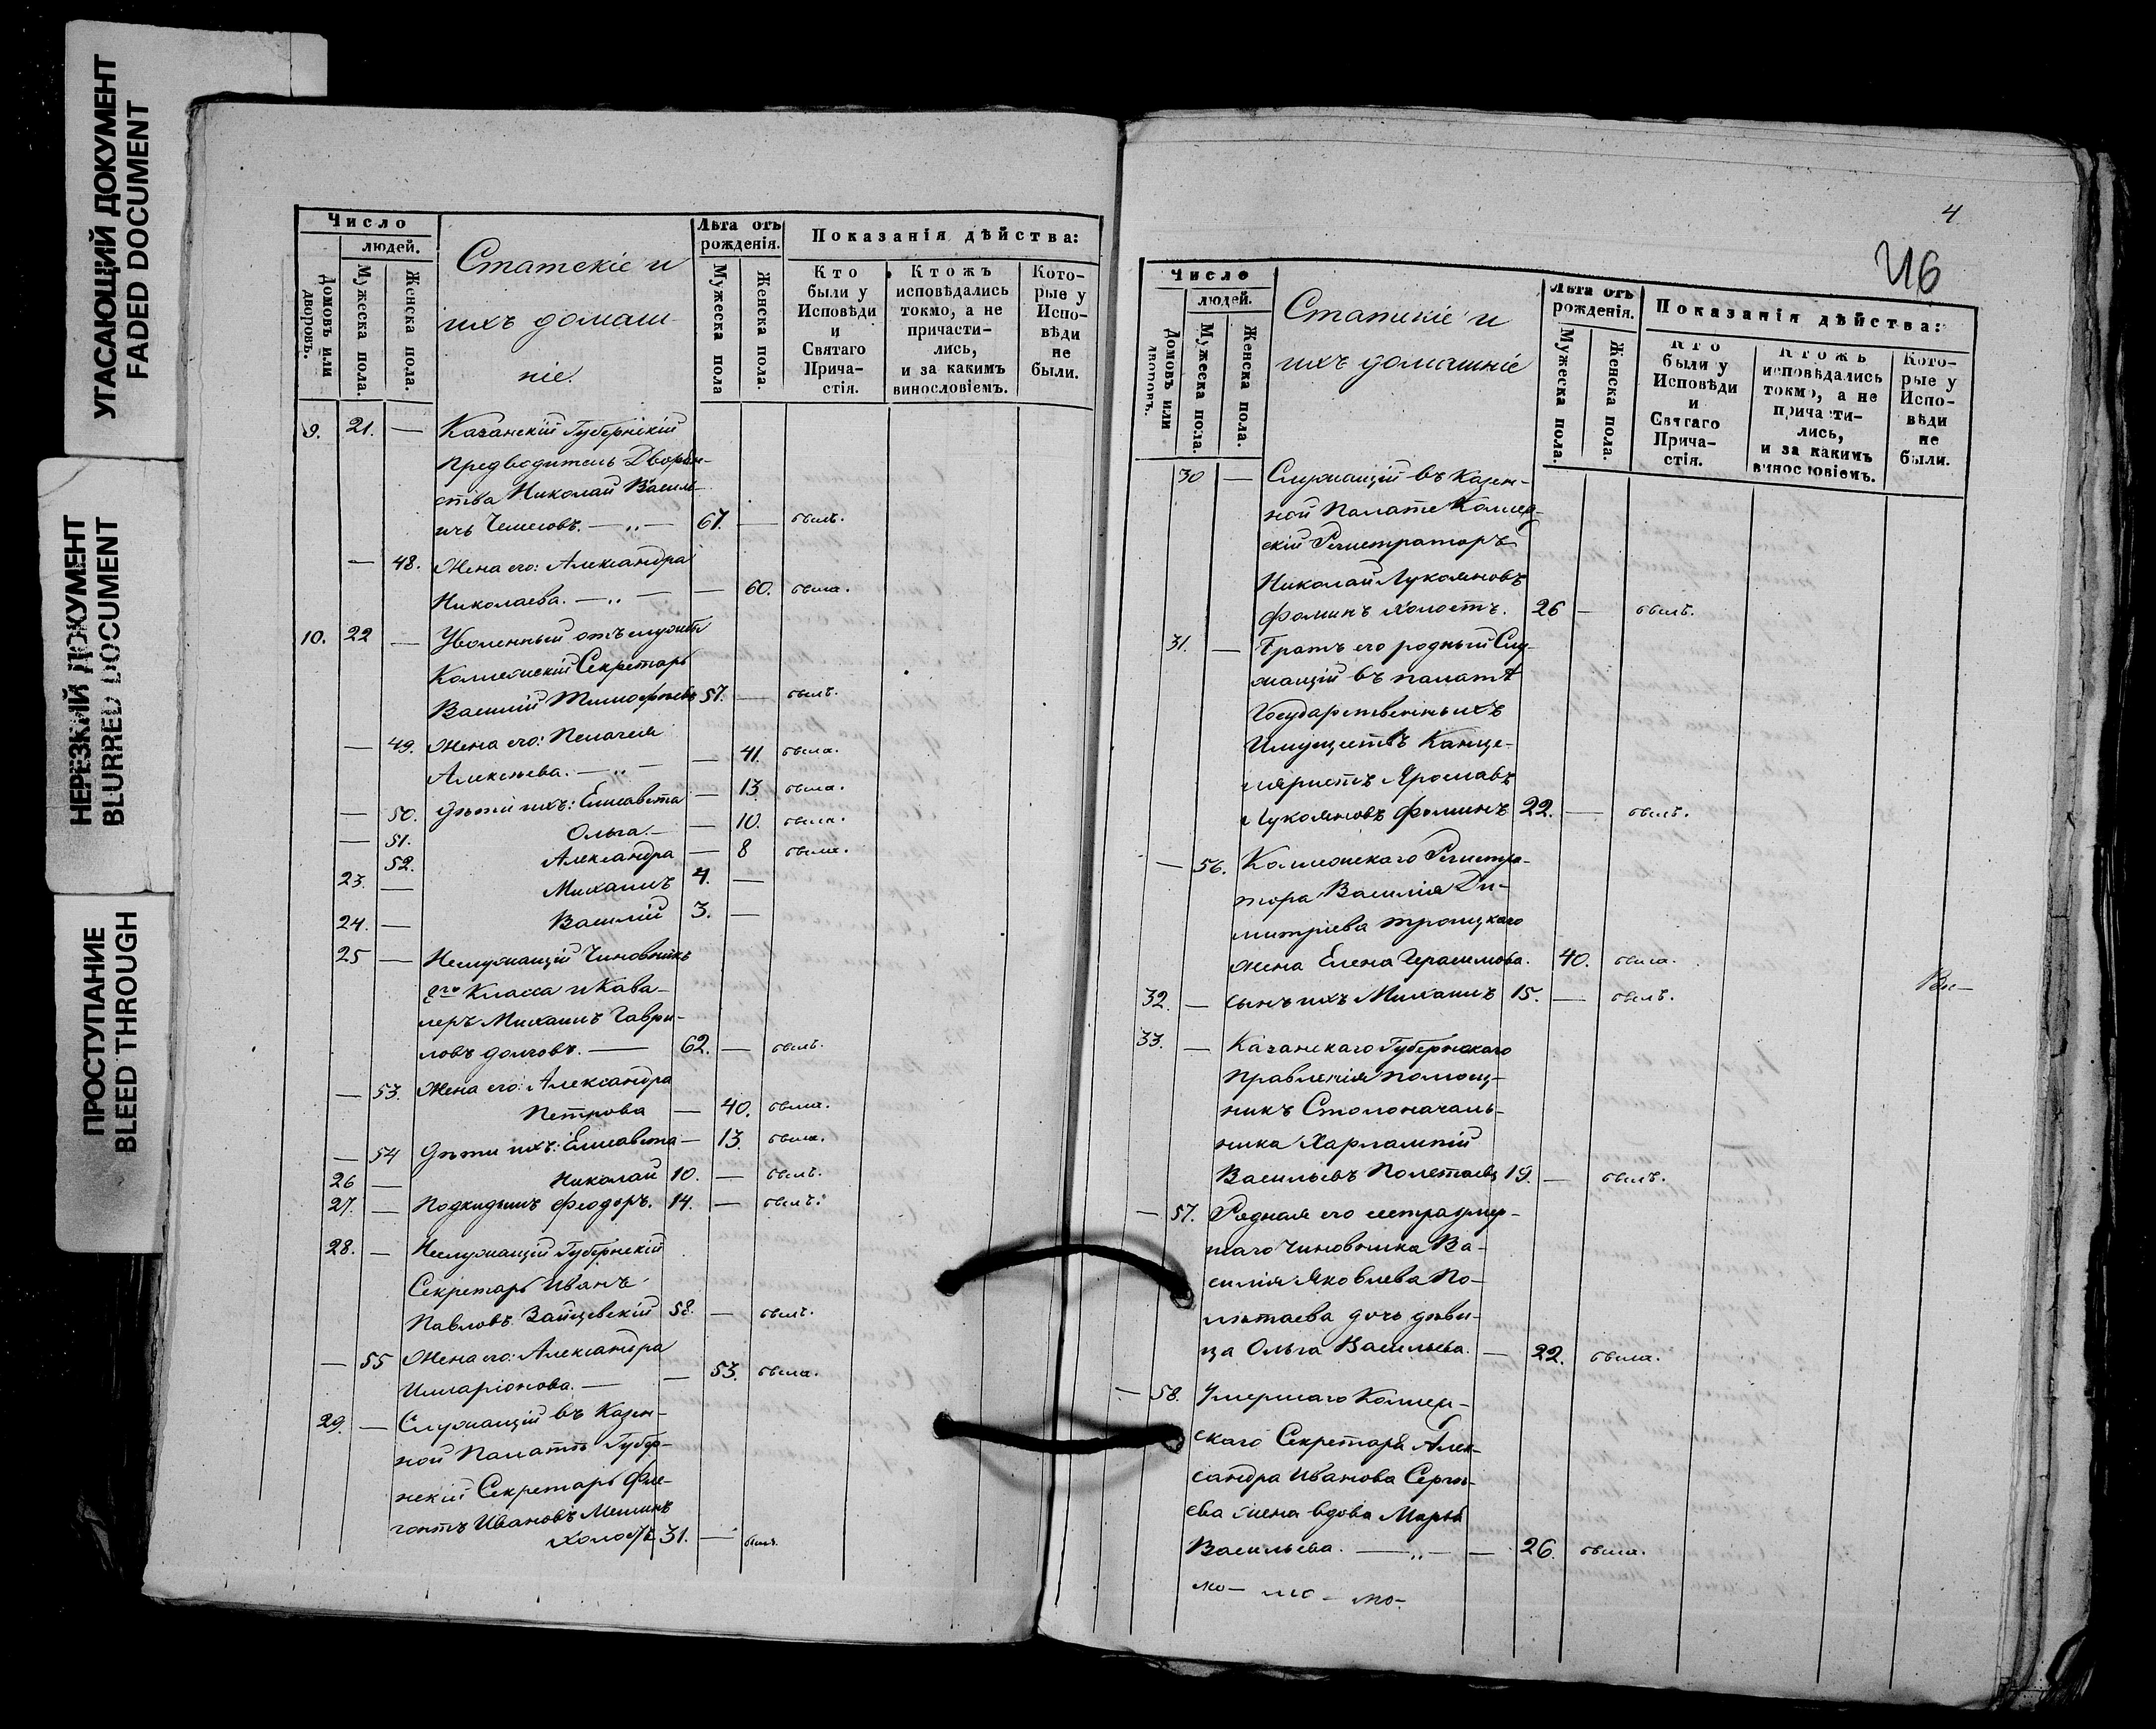 УГАСАЮЩИЙ ДОКУМЕНТ
FADED DOCUMENT
НЕРЕЗКИЙ ДОКУМЕНТ
BLURRED DOCUMENT
ПРОСТУПАНИЕ
BLEED THROUGH
Число
людей.
Домовъ или дворовъ.
Мужеска пола.
Женска пола.
Статскіе и
ихъ домаш-
ніе.
Лѣта отъ рожденія.
Мужеска пола
Женска пола.
Показанія дѣйства:
Кто были у Исповѣди и Святаго Прича-стія.
Ктожъ исповѣдались токмо, а не причасти-лись, и за какимъ винословіемъ.
Кото-рые у Испо-вѣди не были.
9. 21. — Казанскій Губернскій
Предводитель Дворян-
ства Николай Василь-
ичь — „ — 67. — былъ.
— 48. Жена его: Александра
Николаева. — „ — — 60. была.
10. 22 — Уволенный отъ службы
Коллежскій Секретарь
Василій Тимофѣевъ 57. — былъ.
— 49. Жена его: Пелагея
Алексѣева. — „ — — 41. была.
— 50. Дѣти ихъ: Елисавета — 13. была.
— 51. Ольга. — — 10. была.
52. Александра — 8 была.
23. — Михаилъ 4. —
24. — Василій 3. —
25 — Неслужащій Чиновникъ
9го Класса и Кава-
леръ Михаилъ Гаври-
ловъ Долговъ. — 62. — былъ.
— 53. Жена его: Александра
Петрова — 40. была.
— 54 Дѣти ихъ: Елисавета — 13. была.
26 — Николай 10. — былъ.
27. — Подкидышъ Феодоръ. 14. — былъ.
28. — Неслужащій Губернскій
Секретарь Иванъ
Павловъ Зайцевскій 58. — былъ.
— 55 Жена его: Александра
Илларіонова. — — 53. была.
29. — Служащій въ Казен-
ной Палатѣ Губер-
нскій Секретарь Фле-
гонтъ Ивановъ
холостъ 31. — былъ.
4
46
Число
людей.
Домовъ или дворовъ.
Мужеска пола.
Женска пола.
Статскіе и
ихъ домашніе
Лѣта отъ рожденія.
Мужеска пола.
Женска пола.
Показанія дѣйства:
Кто были у Исповѣди и Святаго Прича-стія.
Ктожъ исповѣдались токмо, а не причасти-лись, и за какимъ винословіемъ.
Кото-рые у Испо-вѣди не были.
30 — Служащій въ Казен-
ной Палатѣ Коллеж-
скій Регистраторъ
Николай Лукояновъ
Фоминъ холостъ. 26 — былъ.
31. — Братъ его родный Слу-
жащій въ палатѣ
Государственныхъ
Имуществъ Канце-
ляристъ Ярославъ
Лукояновъ Фоминъ 22. — былъ.
— 56. Коллежскаго Регистра-
тора Василія Ди-
митріева Троицкаго
жена Елена Герасимова. 40. была.
32. — сынъ ихъ Михаилъ 15. — былъ.
33. — Казанскаго Губернскаго
Правленія Помощ-
никъ Столоначаль-
ника Харлампій
Васильевъ Полетаевъ 19. — былъ.
— 57. Родная его сестра умер-
шаго чиновника Ва-
силія Яковлева По-
лѣтаева дочь дѣви-
ца Ольга Васильева. — 22. была.
— 58. Умершаго Коллеж-
скаго Секретаря Алек-
сандра Иванова Сергѣ-
ева жена вдова Марья
Васильева. — „ — — 26. была.